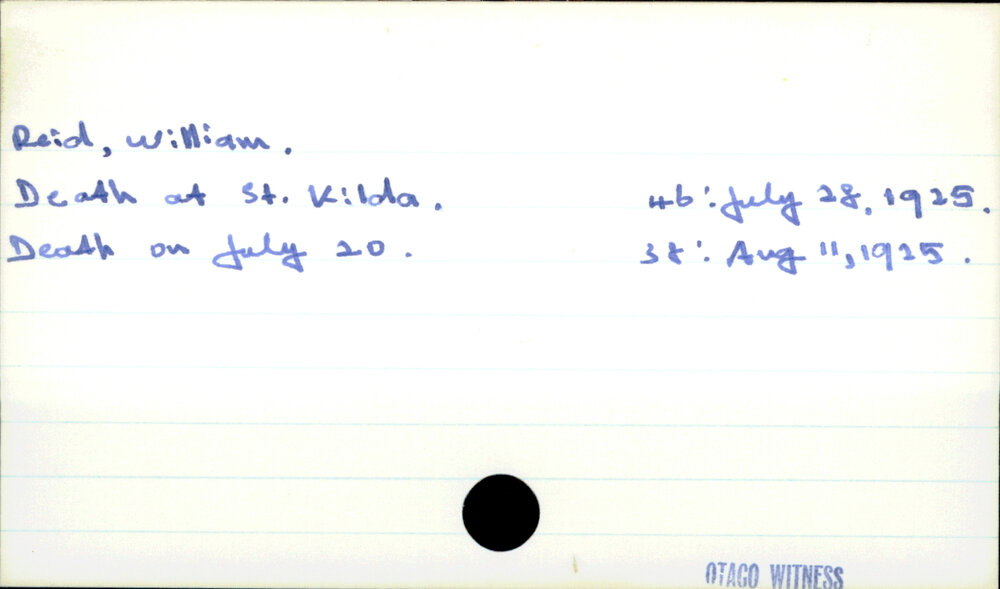 Reid, William.
Death at St. Kilda. 46: July 28, 1925.
Death on July 20. 38: Aug 11, 1925.
OTAGO WITNESS